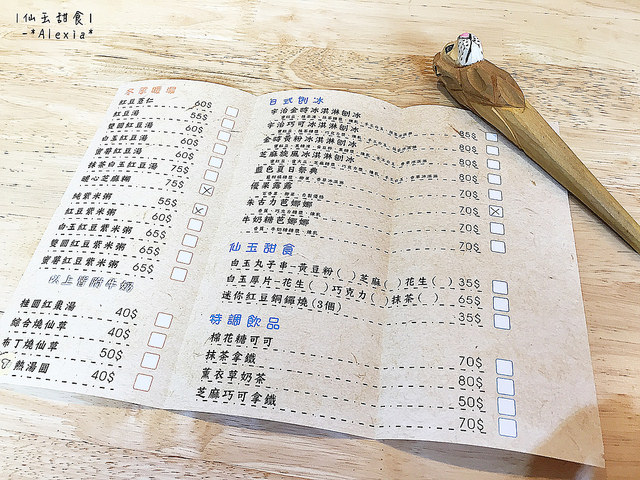 |仙玉甜食|
-*Alexia*
冬季暖暖
紅豆薏仁 60$
紅豆湯 55$
雙圓紅豆湯 60$
白玉紅豆湯 60$
蜜薯紅豆湯 60$
抹茶白玉紅豆湯 75$
暖心芝麻糊 75$
純紫米粥 55$
紅豆紫米粥 60$
白玉紅豆紫米粥 65$
雙圓紅豆紫米粥 65$
蜜薯紅豆紫米粥 65$
以上皆附牛奶
桂圓紅棗湯 40$
綜合燒仙草 40$
布丁燒仙草 50$
熱湯圓 40$
日式刨冰
宇治金時冰淇淋刨冰 85$
宇治巧可冰淇淋刨冰 80$
金時黃粉冰淇淋刨冰 80$
芝麻旋風冰淇淋刨冰 80$
藍色夏日祭典 70$
優果露露 70$
朱古力芭娜娜 70$
牛奶糖芭娜娜 70$
仙玉甜食
白玉丸子串-黃豆粉( )芝麻( )花生( ) 35$
白玉厚片-花生( )巧克力( )抹茶( ) 65$
迷你紅豆銅鑼燒(3個) 35$
特調飲品
棉花糖可可 70$
抹茶拿鐵 80$
薰衣草奶茶 50$
芝麻巧可拿鐵 70$